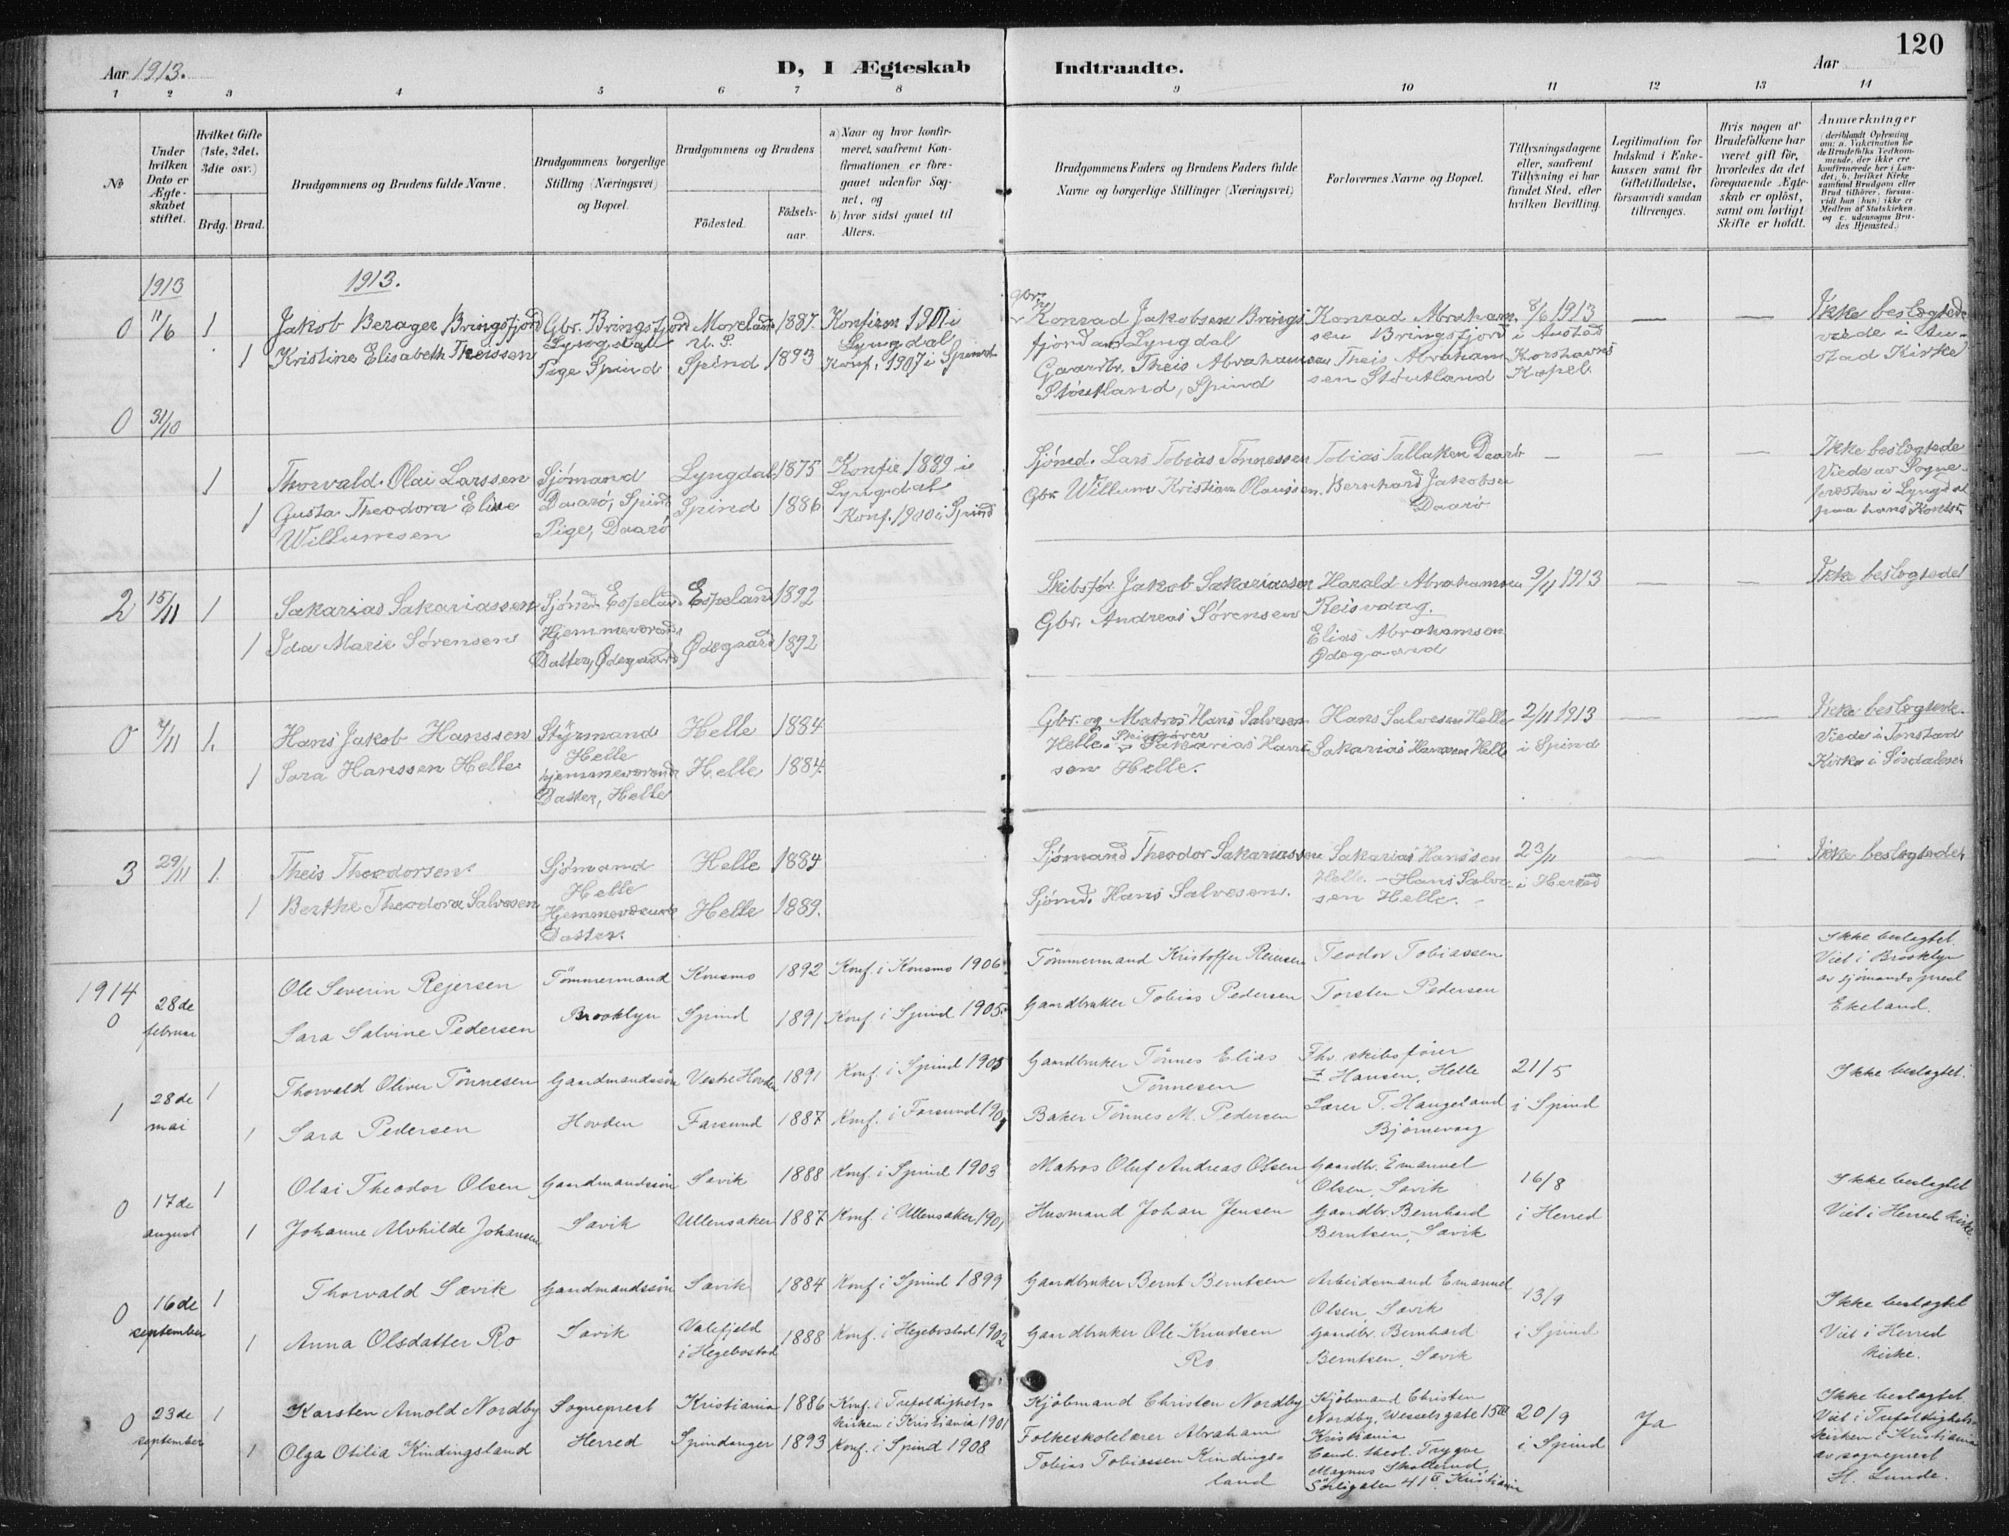 120
Aar 1913.
D, I Ægteskab Indtraadte.
Aar
1 2 3 4 5 6 7 8 9 10 11 12 13 14
No
Under hvilken Dato er Ægteskabet stiftet.
Hvilket Gifte (1ste, 2det, 3die osv.)
Brdg. Brud.
Brudgommens og Brudens fulde Navne.
Brudgommens borgerlige Stilling (Næringsvei) og Bopæl.
Brudgommens og Brudens
Födested.
Födsels-aar.
a) Naar og hvor konfir-
meret, saafremt Kon-
firmationen er fore-
gaaet udenfor Sog-
net, og
b) hvor sidst gaaet til
Alters.
Brudgommens Faders og Brudens Faders fulde
Navne og borgerlige Stillinger (Næringsvei)
Forlovernes Navne og Bopæl.
Tillysningsdagene
eller, saafremt
Tillysning ei har
fundet Sted, efter
hvilken Bevilling.
Legitimation for
Indskud i Enke-
kassen samt for
Giftetilladelse,
forsaavidt saadan
tiltrænges.
Hvis nogen af
Brudefolkene har
været gift för,
hvorledes da det
foregaaende Ægte-
skab er oplöst,
samt om lovligt
Skifte er holdt.
Anmærkninger
(deriblandt Oplysning
om: a. Vakcination for
de Brudefolks Vedkom-
mende, der ikke ere
konfirmerede her i Lan-
det, b. hvilket Kirke
samfund Brudgom eller
Brud tilhörer, forsaa-
vidt han (hun) ikke er
Medlem af Statskirken,
og c. udensogns Bru-
des Hjemsted.)
1913
1913.
0 11/6 1 Jakob Berager Bringsfjord Gbr. Bringsfjord 1887 Konfirm 1901 i Lyngdal
Gbr. Konrad Jakobsen Brings-
fjord av Lyngdal
Konrad Abraham-
sen Bringsfjord
8/6 1913
i Austad
Ikke beslegtede
viede i Au-
stad Kirke
1 Kristine Elisabeth Theissen Pige Spind Spind 1893 Konf. 1907 i Spind
Gaardbr. Theis Abrahamsen
Stöutland, Spind
Theis Abraham-
sen Stöutland
Korshavns
Kapel.
0 31/10
1 Thorvald Olai Larssen Sjömand
Daarö, Spind Lyngdal 1875 Konfir 1889 i
Lyngdal
Sjömd. Lars Tobias Tönnessen Tobias Tallaksen Daarö
Ikke beslegtede
Viede av Sogne-
presten i Lyngdal
paa hans Kontor
1 Gusta Theodora Elise
Willumsen Pige, Daarö Spind 1886 Konf. 1900 i Spind
Gbr. Willum Kristian Olaussen. Bernhard Jakobsen
Daarö
2 15/11 1 Sakarias Sakariassen Sjömd Espeland Espeland 1892
Skibsför. Jakob Sakariassen Harald Abrahamsen
Reisvaag.
9/11 1913 Ikke beslegtede
1 Ida Marie Sörensen Hjemmeværende
Datter, Ödegaard Ödegaard 1892
Gbr. Andreas Sörensen Elias Abrahamsen
Ödegaard
0 4/11 1. Hans Jakob Hanssen Styrmand
Helle Helle 1884
Gbr. og Matros Hans Salvesen
Helle. Hans Salvesen Helle 2/11 1913
i Spind
Ikke beslegtede.
Viede i Tonstad
Kirke i Sirdalen
1 Sara Hanssen Helle hjemmeværende
Datter, Helle Helle 1884
Sakarias Hans-
sen Helle. Sakarias Hanssen Helle
3 29/11 1. Theis Theodorsen. Sjömand
Helle Helle 1884
Sjömand Theodor Sakariassen Sakarias Hanssen
Helle. 23/11
i Herred
Ikke beslegtede
1 Berthe Theodora Salvesen Hjemmeværende
Datter. Helle 1889.
Sjömd. Hans Salvesen. Hans Salve-
sen Helle.
1914
0 28de
februar Ole Severin Reiersen Tömmermand Konsmo 1892 Konf. i Konsmo 1906
Tömmermand Kristoffer Reiersen Teodor Tobiassen
Ikke beslegtet.
Viet i Brooklyn
av sjömandsprest
Ekeland.
Sara Salvine Pedersen Brooklyn Spind 1891 Konf. i Spind 1905.
Gaardbruker Tobias Pedersen Torsten Pedersen
1 28de
mai 1 Thorvald Oliver Tönnesen Gaardmandssön Vestre Hovden 1891 Konf. i Spind 1905
Gaardbruker Tönnes Elias
Tönnesen Fhv. skibsförer
Z. Hansen, Helle 21/5
i Spind Ikke beslegtet.
1 Sara Pedersen Hovden Farsund 1887 Konf. i Farsund
Baker Tönnes M. Pedersen Lærer T. Haugeland
Björnevaag
0 17de
august 1 Olai Theodor Olsen Gaardmandssön Sævik 1888 Konf. i Spind 1903
Matros Oluf Andreas Olsen Gaardbr. Emanuel
Olsen, Sævik 16/8
i Herred Ikke beslegtet
Viet i Herred kirke.
1 Johanne Alvhilde Johansen Sævik Ullensaker 1887 Konf. i Ullensaker 1901
Husmand Johan Jensen Gaardbr. Bernhard
Berntsen, Sævik
0 16de
september 1 Thorvald Sævik Gaardmandssön Sævik 1884 Konf. i Spind 1899
Gaardbruker Bernt Berntsen Arbeidsmand Emanuel
Olsen, Sævik 13/9
i Spind Ikke beslegtet
Viet i Herred
kirke.
1 Anna Olsdatter Ro Sævik Valefjeld
i Hegebostad 1888 Konf. i Hegebostad 1902
Gaardbruker Ole Knudsen
Ro Gaardbr. Bernhard
Berntsen, Sævik
0 23de
september 1 Karsten Arnold Nordby Sogneprest Kristiania 1886 Konf. i Trefoldigheds-
kirken i Kristiania 1901
Kjöbmand Christen Nordby Kjöbmand Christen
Nordby, Wesselsgate 15III
Kristiania 20/9
i Spind Ja Ikke beslegtet
Viet i Trefoldigheds-
kirken i Kristiania
av sogneprest
H. Lunde.
1 Olga Otilia Kindingsland Herred Spindanger 1893 Konf. i Spind 1908
Folkeskolelærer Abraham
Tobias Tobiassen Kindings-
land Cand. theol. Trygve
Magnus Skotterud
Sörligaten 41II, Kristiania